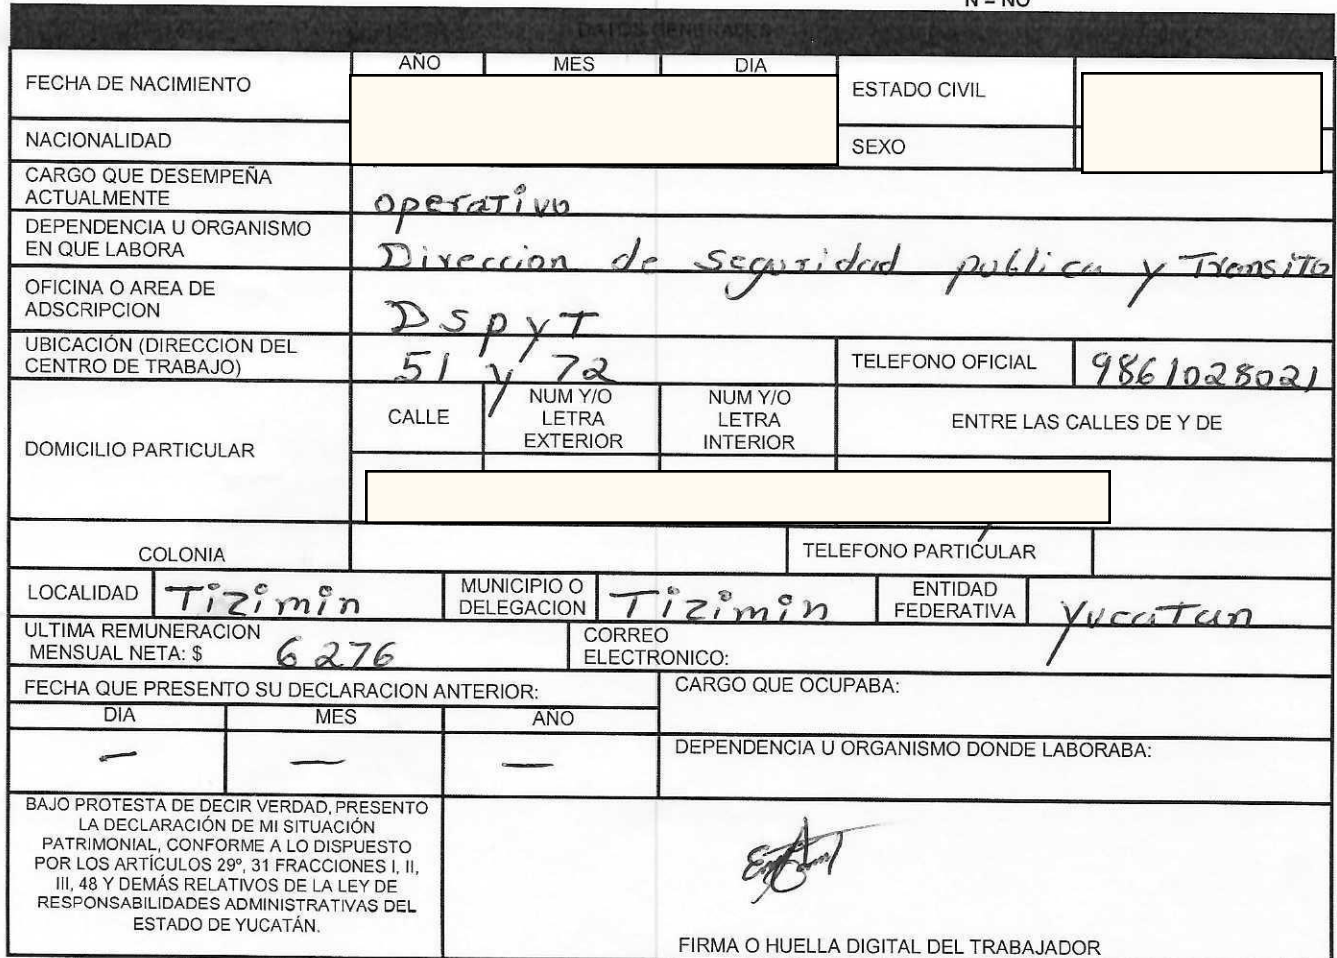 N = NO
DATOS GENERALES
FECHA DE NACIMIENTO
AÑO MES DIA
ESTADO CIVIL
NACIONALIDAD
SEXO
CARGO QUE DESEMPEÑA
ACTUALMENTE
operativo
DEPENDENCIA U ORGANISMO
EN QUE LABORA
Direccion de seguridad publica y Transito
OFICINA O AREA DE
ADSCRIPCION
DSpyT
UBICACIÓN (DIRECCION DEL
CENTRO DE TRABAJO)
51 y 72
TELEFONO OFICIAL
9861028021
DOMICILIO PARTICULAR
CALLE
NUM Y/O
LETRA
EXTERIOR
NUM Y/O
LETRA
INTERIOR
ENTRE LAS CALLES DE Y DE
COLONIA
TELEFONO PARTICULAR
LOCALIDAD
Tizimin
MUNICIPIO O
DELEGACION
Tizimin
ENTIDAD
FEDERATIVA
Yucatan
ULTIMA REMUNERACION
MENSUAL NETA: $ 6276
CORREO
ELECTRONICO:
FECHA QUE PRESENTO SU DECLARACION ANTERIOR:
DIA MES AÑO
— — —
CARGO QUE OCUPABA:
DEPENDENCIA U ORGANISMO DONDE LABORABA:
BAJO PROTESTA DE DECIR VERDAD, PRESENTO
LA DECLARACIÓN DE MI SITUACIÓN
PATRIMONIAL, CONFORME A LO DISPUESTO
POR LOS ARTÍCULOS 29º, 31 FRACCIONES I, II,
III, 48 Y DEMÁS RELATIVOS DE LA LEY DE
RESPONSABILIDADES ADMINISTRATIVAS DEL
ESTADO DE YUCATÁN.
FIRMA O HUELLA DIGITAL DEL TRABAJADOR